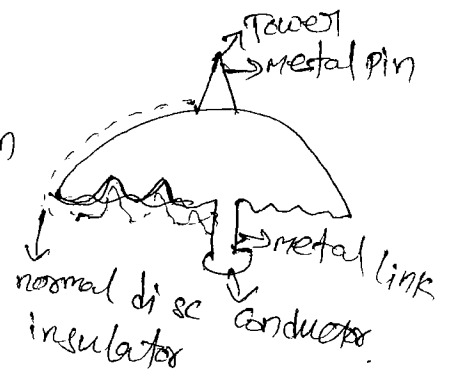 Tower
Metal pin
n
metal link
normal disc
insulator
conductor.